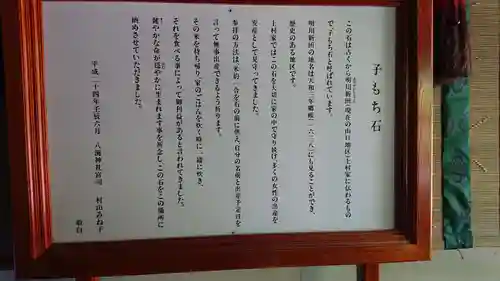 子もち石
この石は古くから明川新田(現在の山口地区)上村家に伝わるもの
で、「子もち石」と呼ばれています。
明川新田の地名は天和三年郷帳(一六八三)にも見ることができ、
歴史のある地区です。
上村家ではこの石を大切に家の中で守り続け、多くの女性の出産を
安産として見守ってきました。
参拝の方法は、米約一合を石の前に供え、自分の名前と出産予定日を
言って無事出産できるよう祈ります。
その米を持ち帰り、家のごはんを炊く時に一緒に炊き、
それを食べる事によって御利益があると言われてきました。
健やかな命が穏やかに生まれます事を祈念し、この石をこの場所に
納めさせていただきました。
平成二十四年壬辰六月 八幡神社宮司 村山みね子
敬白